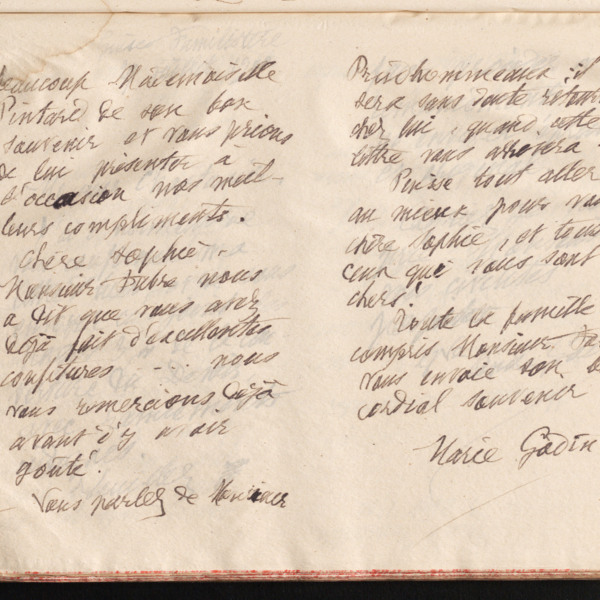 beaucoup Mademoiselle
Pintard de son bon
souvenir et vous prions
de lui présenter à
d'occasion nos meil-
leurs compliments.
Chère Sophie -
Monsieur nous
a dit que vous avez
déjà fait d'excellentes
confitures . . . nous
vous remercions déjà
avant d'y avoir
goûté.
Vous parlez de Monsieur
Prudhommeaux ; il
sera sans doute
chez lui, quand cette
lettre vous arrivera.
Puisse tout aller
au mieux pour vous
chère Sophie, et tous
ceux qui vous sont
chers!
Toute la famille
compris Monsieur
vous envoie son
cordial souvenir
Marie Godin